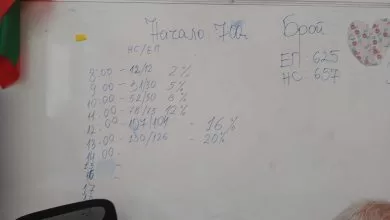 Начало 7:00ч.
Брой
ЕП 625
НС 657
НС/ЕП
8:00 - 12/12 2%
9:00 - 31/30 5%
10:00 - 52/50 8%
11:00 - 78/73 12%
12:00 - 107/101 - 16%
13:00 - 130/126 - 20%
14:00 -
15
16 -
17